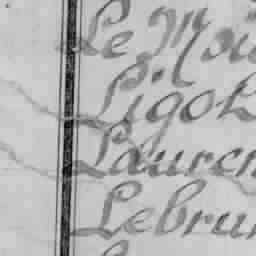 Le Moi
Ligot
Lauren
Lebrun